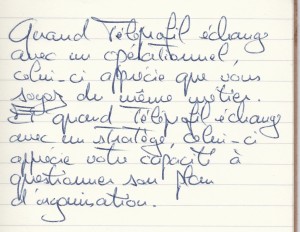 Quand Téléprofil échange
avec un opérationnel,
celui-ci apprécie que vous
soyez du même métier.
Et quand Téléprofil échange
avec un stratège, celui-ci
apprécie votre capacité à
questionner son plan
d'organisation.